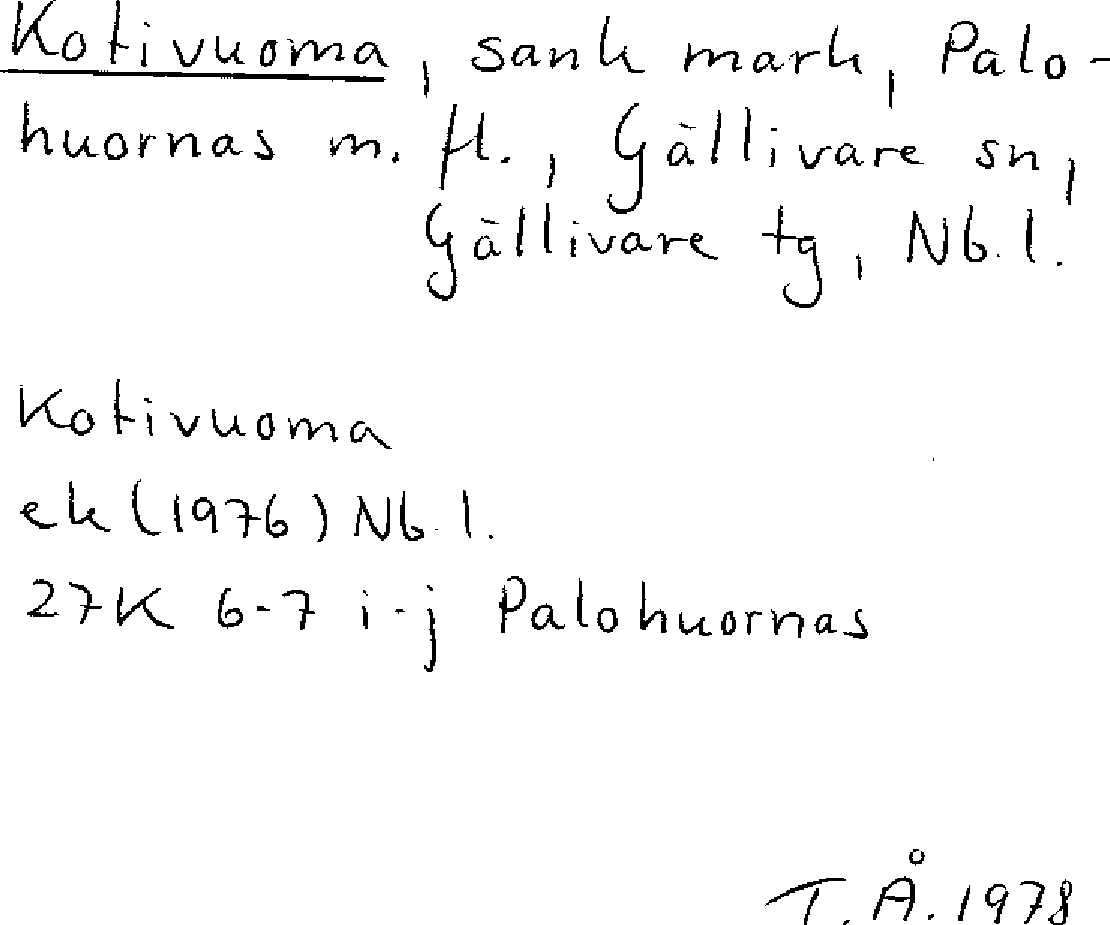 Kotivuoma, sank mark, Palo-
huornas m. fl., Gällivare sn,
Gällivare tg, Nb. l.
Kotivuoma
ek (1976) Nb. l.
27K 6-7 i-j Palohuornas
T. Å. 1978